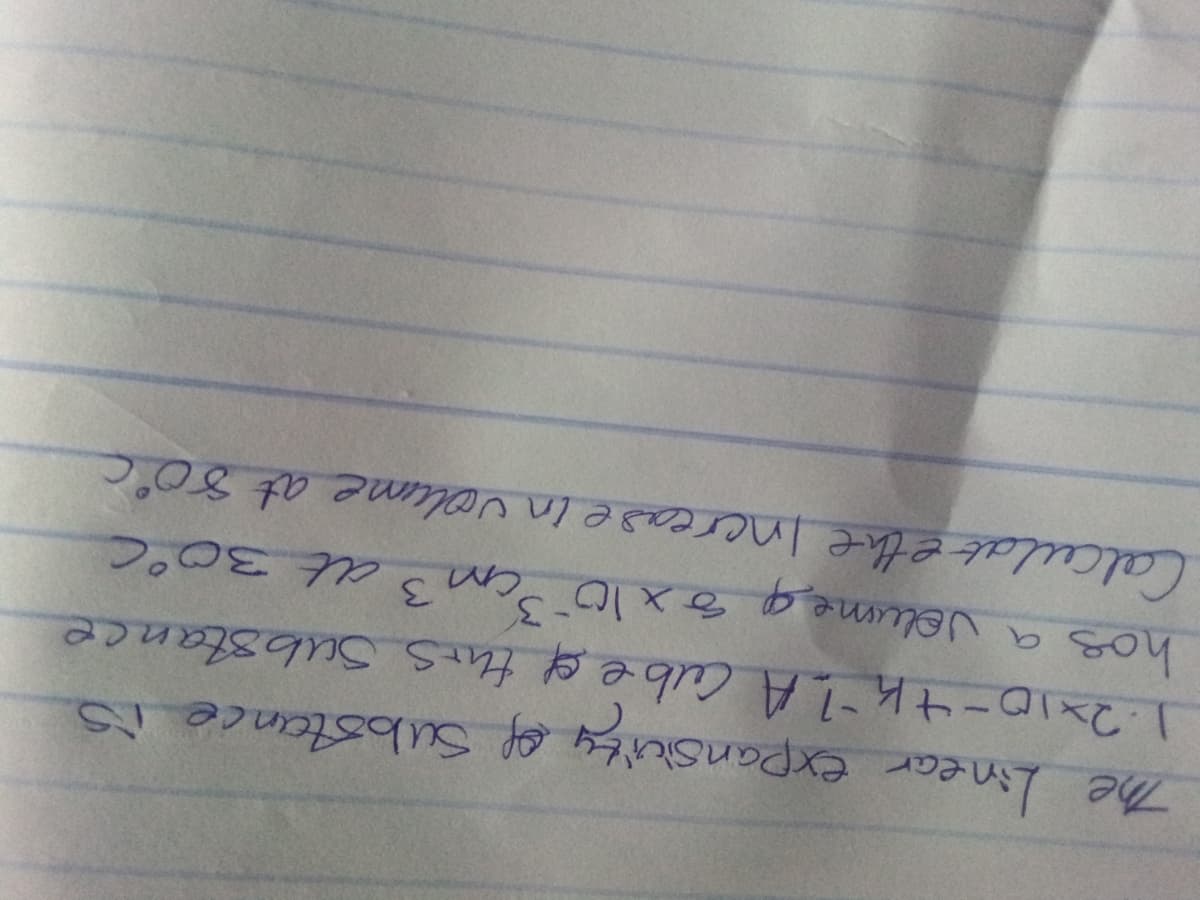 The Linear expansivity of substance is
1.2x10-4K-1. A Cube of this substance
has a volume of 8x10-3cm3 at 30°C
Calculate the Increase in volume at 80°C